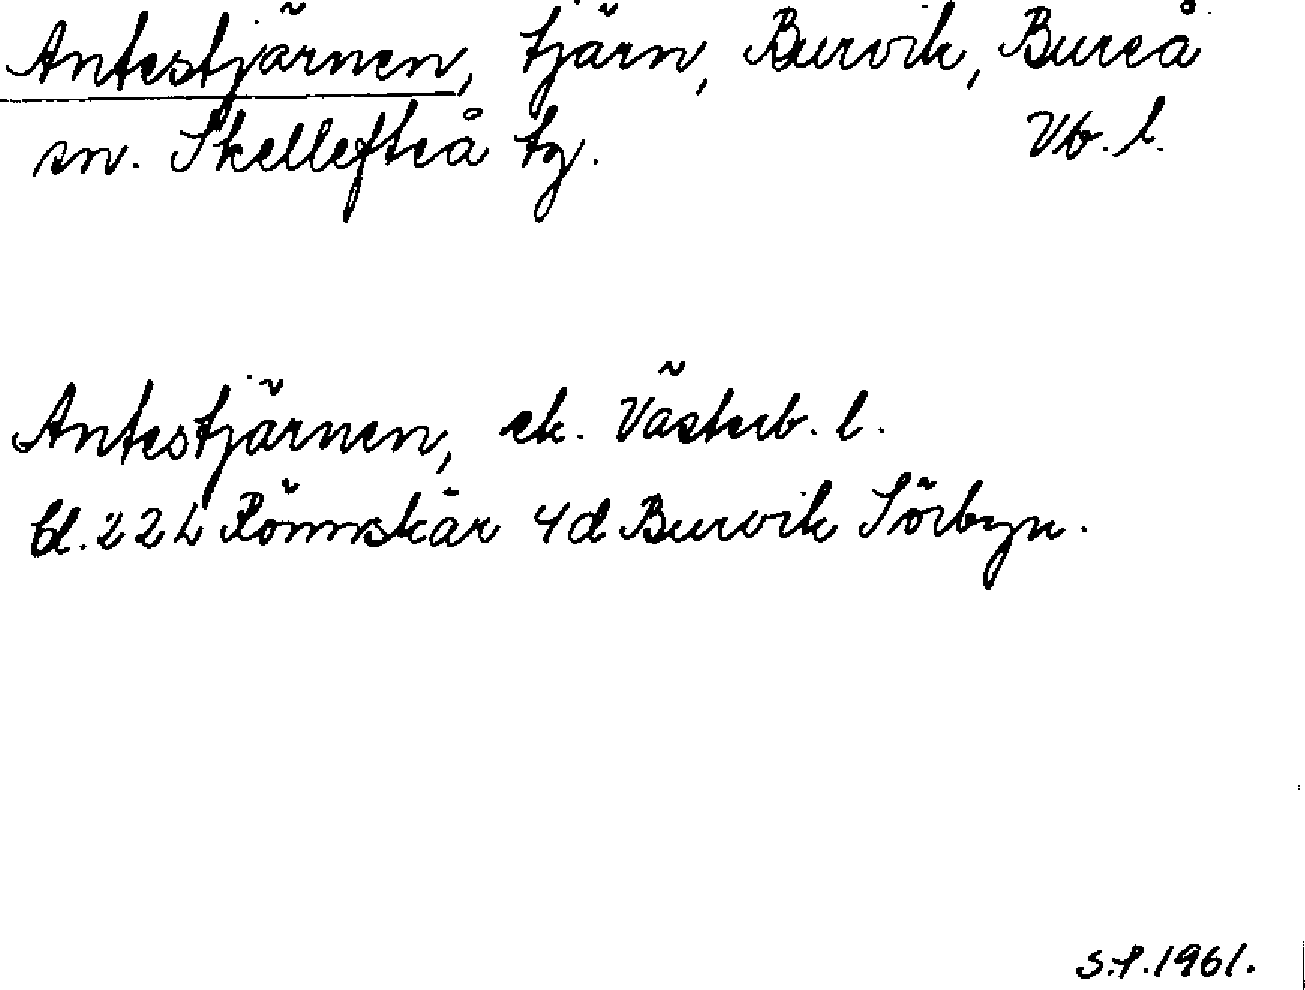 Antestjärnen, tjärn, Burvik, Bureå
sn. Skellefteå tg. Vb. l.
Antestjärnen, ek. Västerb. l.
bl. 22 L Rönnskär 4d Burvik Sörbyn.
S.P. 1961.